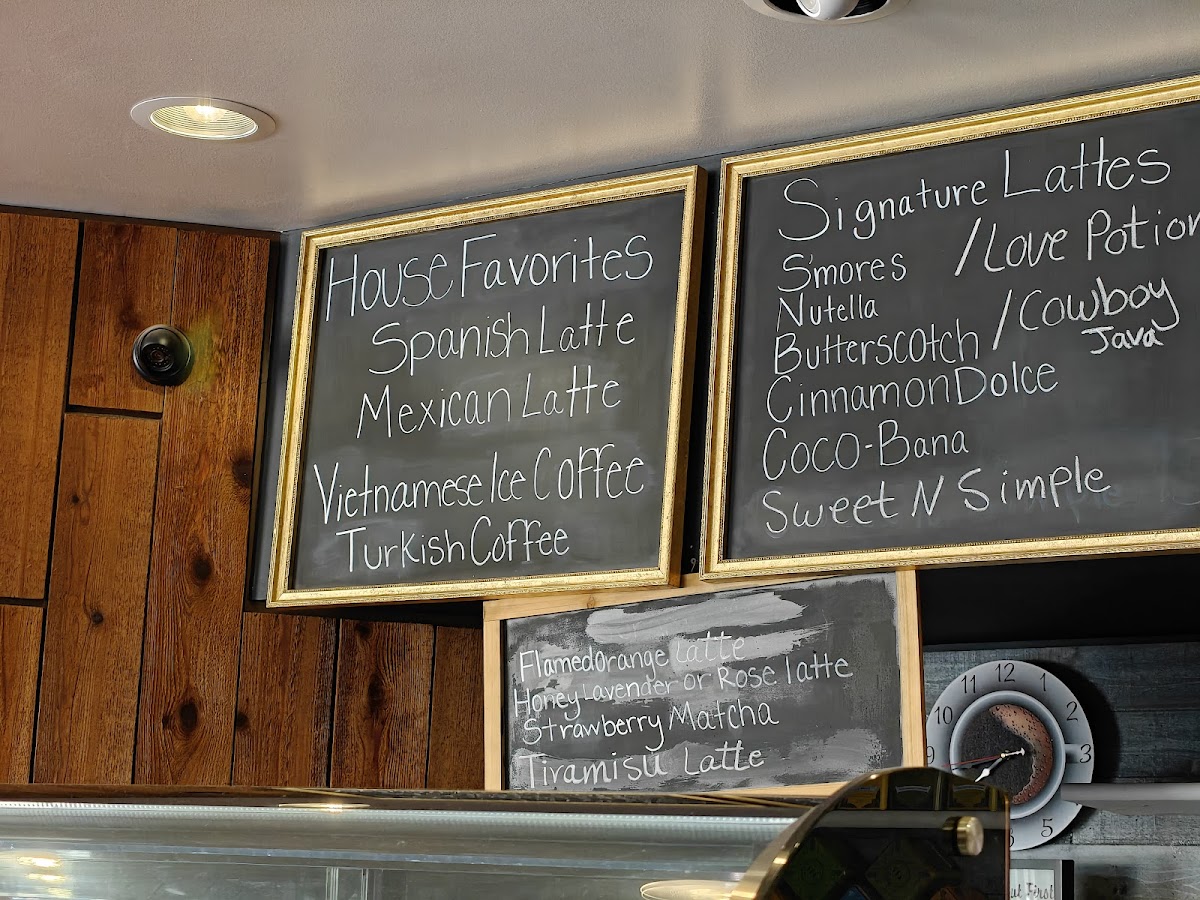 House Favorites
Spanish Latte
Mexican Latte
Vietnamese Ice Coffee
Turkish Coffee
Signature Lattes
S'mores /Love Potion
Nutella
Butterscotch /Cowboy Java
Cinnamon Dolce
Coco-Bana
Sweet N Simple
Flamed orange Latte
Honey Lavender or Rose latte
Strawberry Matcha
Tiramisu Latte
11 12 1
10 2
9 3
5
First